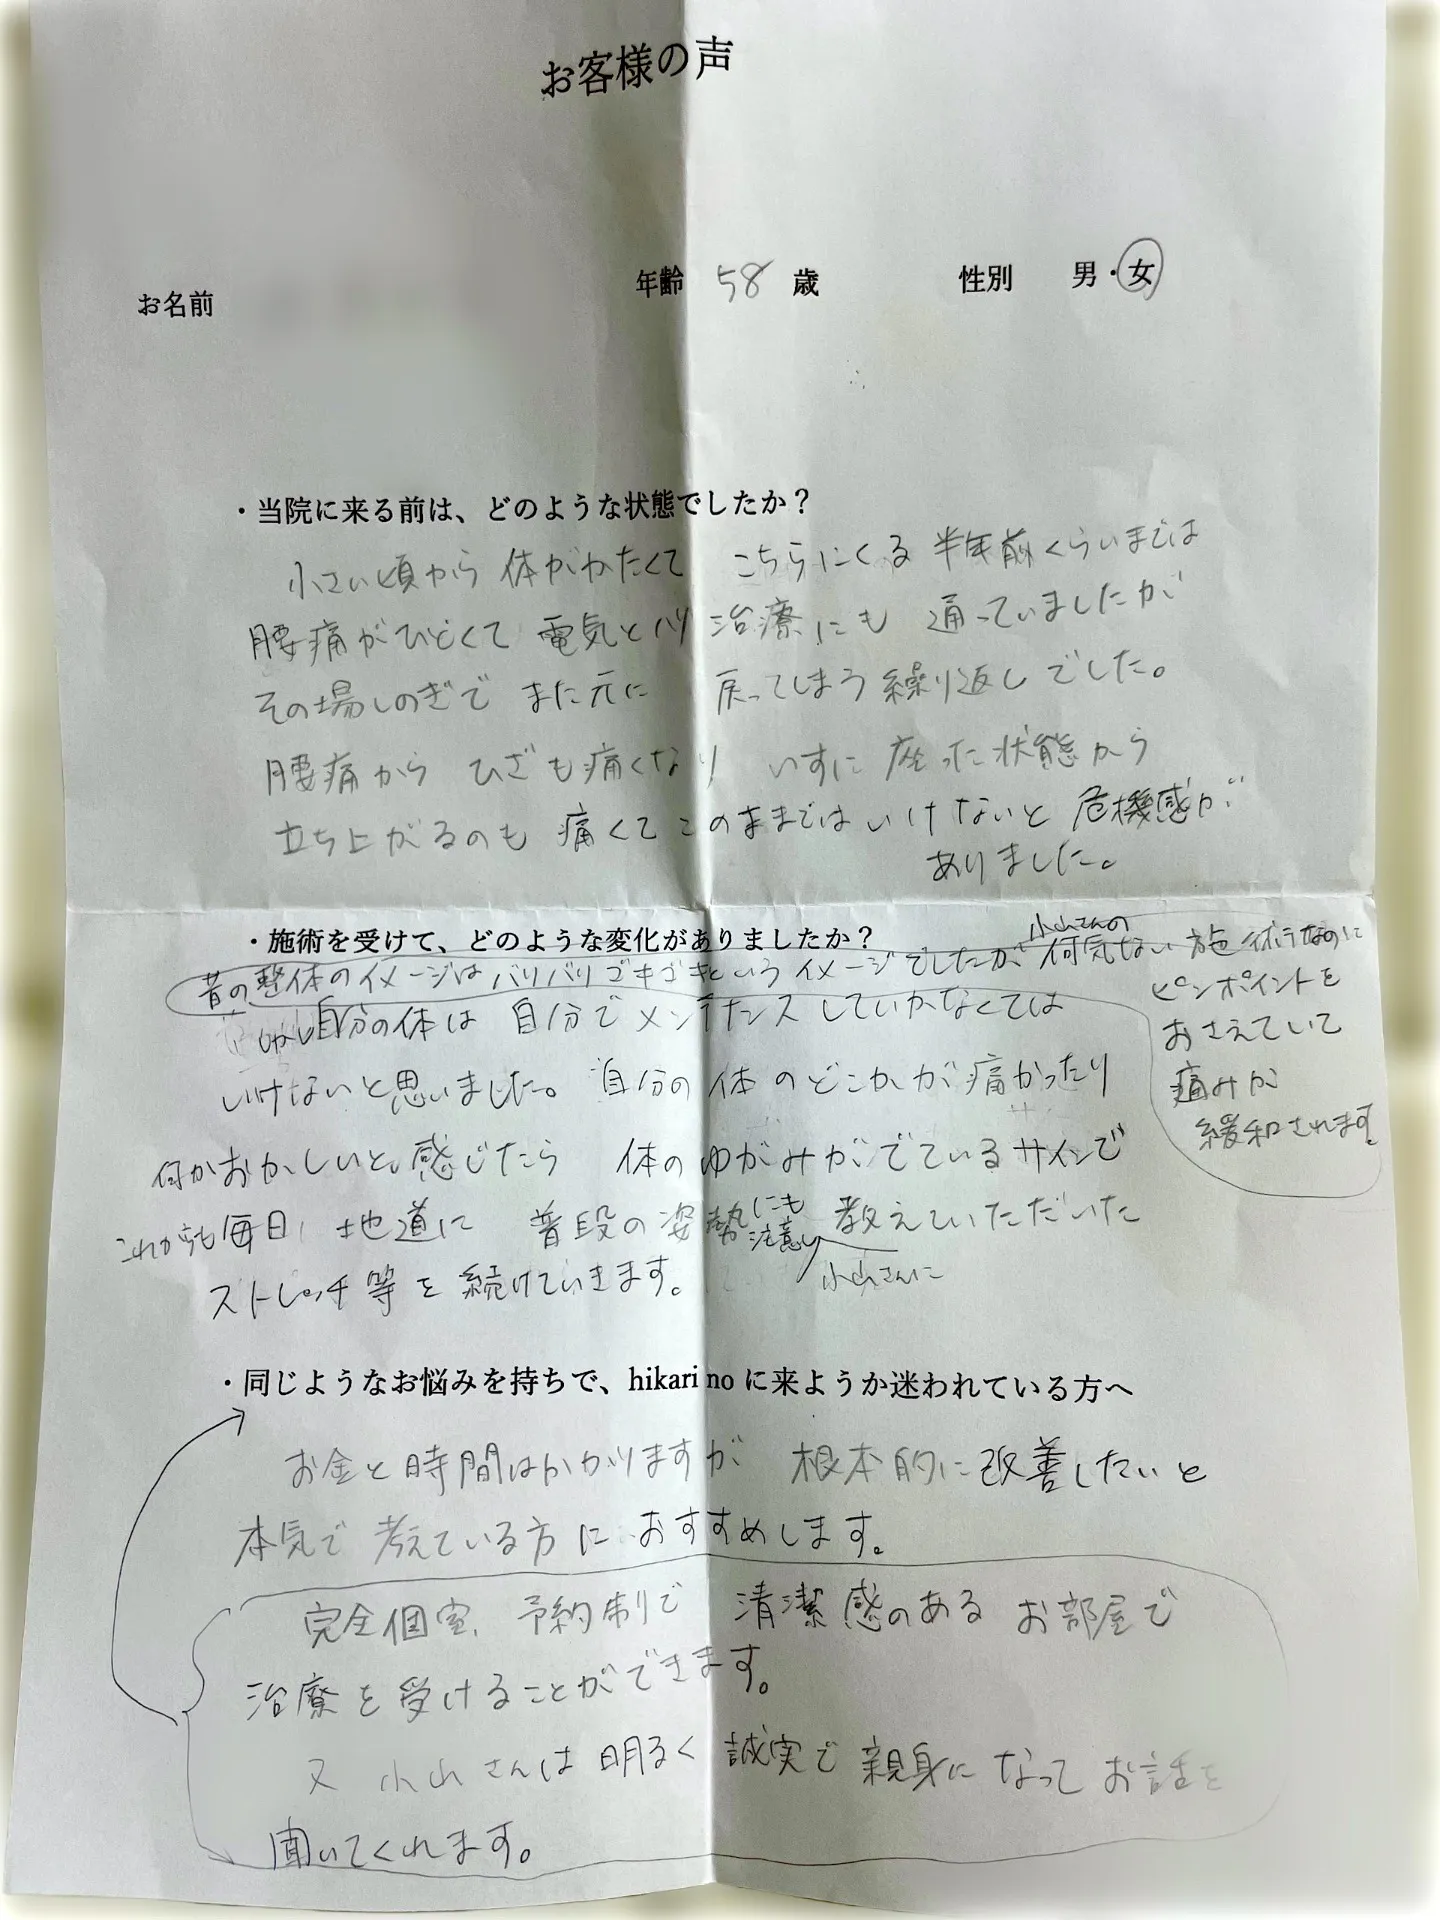 お客様の声
お名前
年齢 58 歳 性別 男・女
・当院に来る前は、どのような状態でしたか？
小さい頃から 体がかたくて こちらにくる 半年前くらいまでは
腰痛がひどくて 電気とハリ治療にも 通っていましたが
その場しのぎで また元に 戻ってしまう 繰り返しでした。
腰痛から ひざも痛くなり いすに 座った状態から
立ち上がるのも 痛くてこのままではいけないと 危機感が
ありました。
・施術を受けて、どのような変化がありましたか？
昔の整体のイメージは バリバリゴキゴキという イメージでしたが 小山さんの 何気ない 施術なのに
ピンポイントを
おさえていて
痛みが
緩和されます
しかし自分の体は 自分でメンテナンスしていかなくては
いけないと思いました。 自分の体のどこかが痛かったり
何かおかしいと感じたら 体のゆがみがでているサインで
これからも毎日 地道に 普段の姿勢にも注意し 小山さんに 教えていただいた
ストレッチ等を続けていきます。
・同じようなお悩みを持ちで、hikari no に来ようか迷われている方へ
お金と時間はかかりますが 根本的に改善したいと
本気で 考えている方に おすすめします。
完全個室、予約制で 清潔感のある お部屋で
治療を受けることができます。
又 小山さんは 明るく 誠実で 親身になって お話を
聞いてくれます。